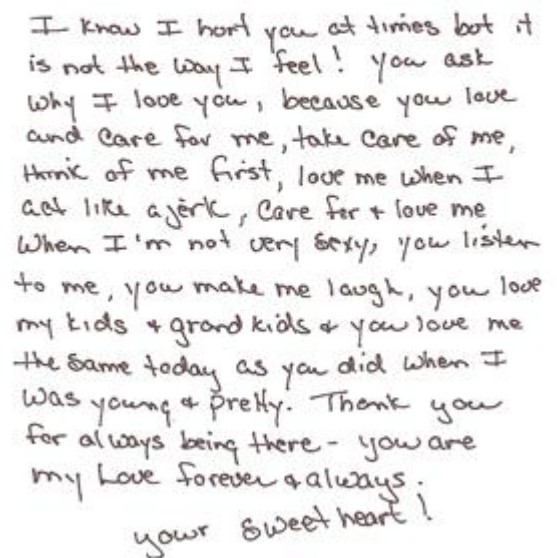 I know I hort you at times but it
is not the way I feel! you ask
why I love you, because you love
and care for me, take care of me,
think of me first, love me when I
act like a jerk, care for + love me
when I'm not very sexy, you listen
to me, you make me laugh, you love
my kids + grand kids + you love me
the same today as you did when I
was young + pretty. Thank you
for always being there - you are
my Love forever + always.
your sweetheart!